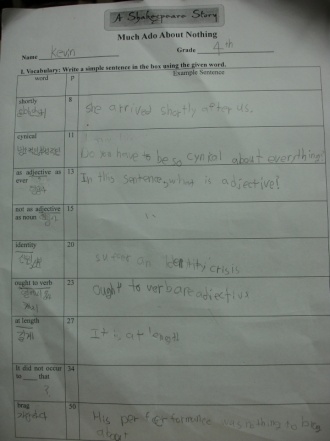 A Shakespeare Story
Much Ado About Nothing
Name Kevin Grade 4th
I. Vocabulary: Write a simple sentence in the box using the given word.
word p Example Sentence
shortly 8 She arrived shortly after us.
cynical 11 Do you have to be so cynical about everything?
as adjective as ever 13 In this sentence, what is adjective?
not as adjective as noun 15 "
identity 20 suffer an identity crisis
ought to verb 23 Ought to verb are adjective
at length 27 It is at length
It did not occur to ___ that 34
?
brag 50 His performance was nothing to brag about